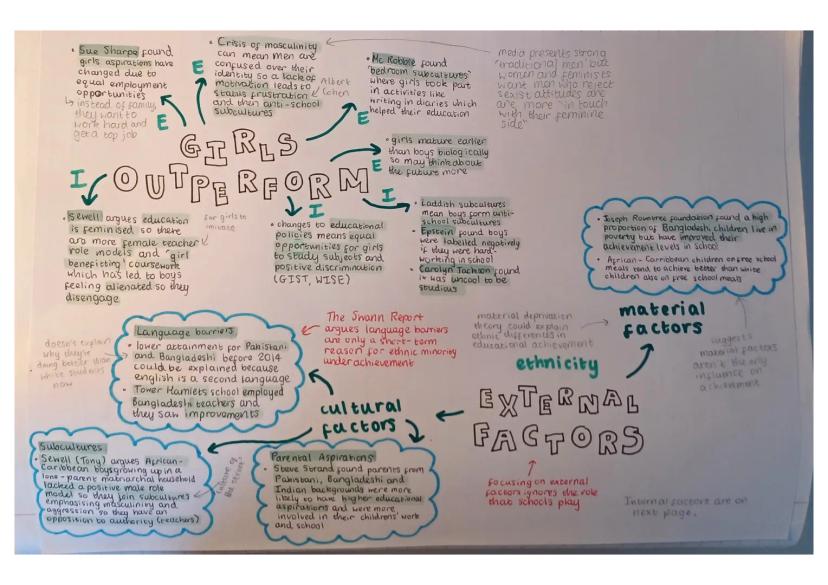 • Sue Sharpe found
girls aspirations have
changed due to
equal employment
opportunities
↳ instead of family,
they want to
work hard and
get a top job
E
• Crisis of masculinity
can mean men are
confused over their
identity so a lack of
motivation leads to
status frustration
and then anti-school
subcultures
Albert
Cohen
E
• Mc Robbie found
'bedroom subcultures'
where girls took part
in activities like
writing in diaries which
helped their education
E
media presents strong
'traditional men' but
women and feminists
want men who reject
sexist attitudes and
are more "in touch
with their feminine
side"
• girls mature earlier
than boys biologically
so may think about
the future more
E
GIRLS
OUTPERFORM
I
• Sewell argues education
is feminised so there
are more female teacher
role models and 'girl
benefitting' coursework
which has led to boys
feeling alienated so they
disengage
for girls to
imitate
I
• changes to educational
policies means equal
opportunities for girls
to study subjects and
positive discrimination
(GIST, WISE)
I
• Laddish subcultures
mean boys form anti-
school subcultures
• Epstein found boys
were labelled negatively
if they were hard-
working in school
• Carolyn Jackson found
it was uncool to be
studious
• Joseph Rowntree foundation found a high
proportion of Bangladeshi children live in
poverty but have improved their
achievement levels in school
• African-Carribean children on free school
meals tend to achieve better than white
children also on free school meals
material
factors
suggests
material factors
aren't the only
influence on
achievement
material deprivation
theory could explain
ethnic differences in
educational achievement
ethnicity
EXTERNAL
FACTORS
focusing on external
factors ignores the role
that schools play
Internal factors are on
next page.
cultural
factors
Language barriers
• lower attainment for Pakistani
and Bangladeshi before 2014
could be explained because
english is a second language
• Tower Hamlets school employed
Bangladeshi teachers and
they saw improvements
doesn't explain
why they're
doing better than
white students
now
The Swann Report
argues language barriers
are only a short-term
reason for ethnic minority
underachievement
Subcultures
• Sewell (Tony) argues African-
Caribbean boys growing up in a
lone-parent matriarchal household
lacked a positive male role
model so they join subcultures
emphasising masculinity and
aggression so they have an
opposition to authority (teachers)
Parental Aspirations
• Steve Strand found parents from
Pakistani, Bangladeshi and
Indian backgrounds were more
likely to have higher educational
aspirations and were more
involved in their children's work
and school